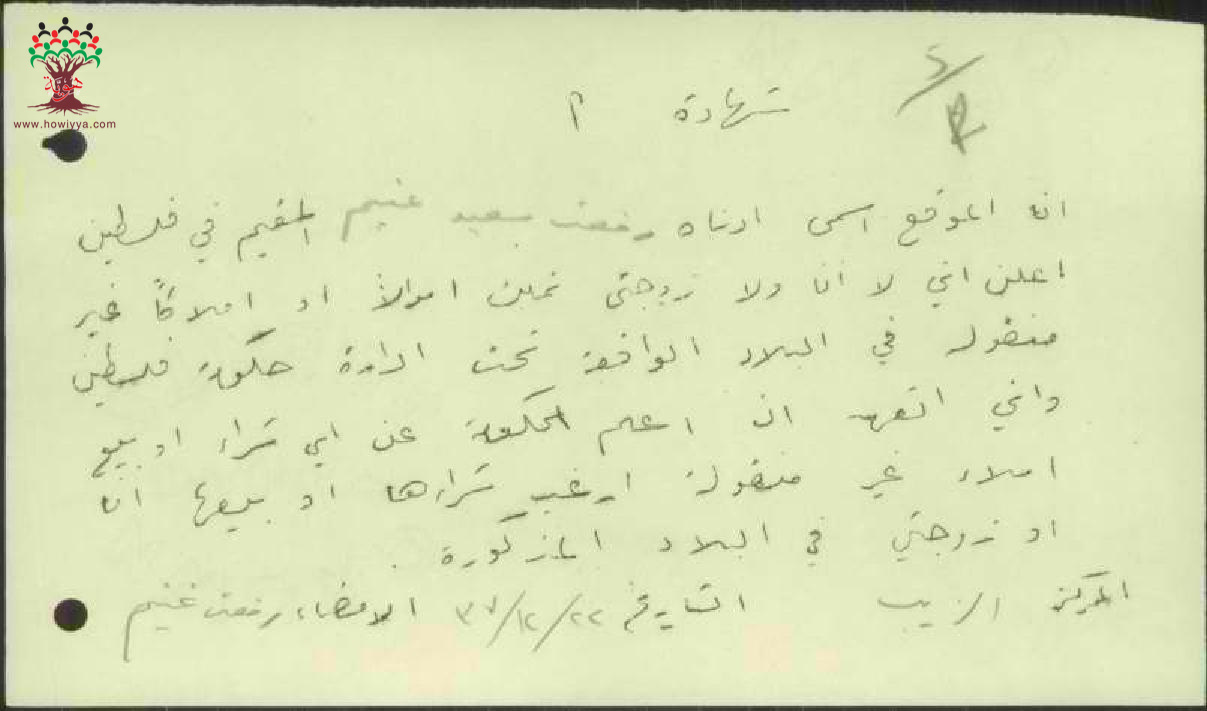 هوية
www.howiyya.com
شهادة م
انا الموقع اسمى ادناه رفعت سعيد غنيم المقيم في فلسطين
اعلن اني لا انا ولا زوجتى نملك اموالاً او املاكاً غير
منقوله في البلاد الواقعة تحت ادارة حكومة فلسطين
واني اتعهد ان اعلم الحكومة عن اي شراء او بيع
املاك غير منقولة ارغب شراءها او بيعها انا
او زوجتي في البلاد المذكورة .
المركز الزيب التاريخ ٢٢/١٢/٣٧ الامضاء رفعت غنيم